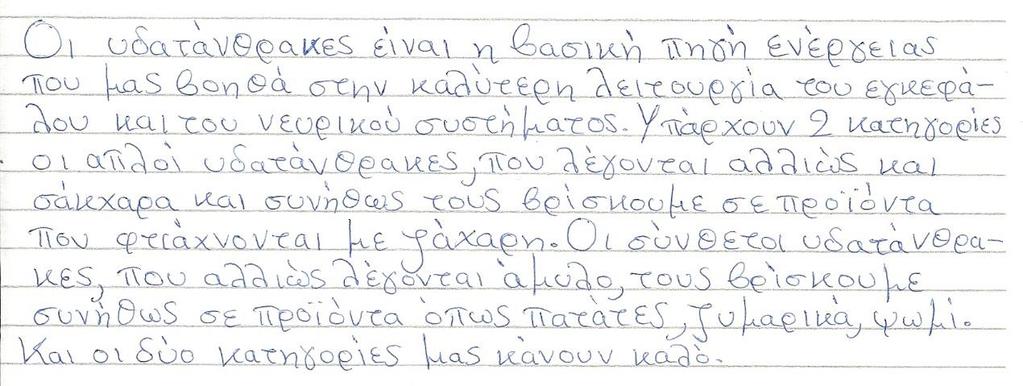 Οι υδατάνθρακες είναι η βασική πηγή ενέργειας
που μας βοηθά στην καλύτερη λειτουργία του εγκεφά-
λου και του νευρικού συστήματος. Υπάρχουν 2 κατηγορίες
οι απλοί υδατάνθρακες, που λέγονται αλλιώς και
σάκχαρα και συνήθως τους βρίσκουμε σε προϊόντα
που φτιάχνονται με ζάχαρη. Οι σύνθετοι υδατάνθρα-
κες, που αλλιώς λέγονται άμυλο, τους βρίσκουμε
συνήθως σε προϊόντα όπως πατάτες, ζυμαρικά, ψωμί.
Και οι δύο κατηγορίες μας κάνουν καλό.